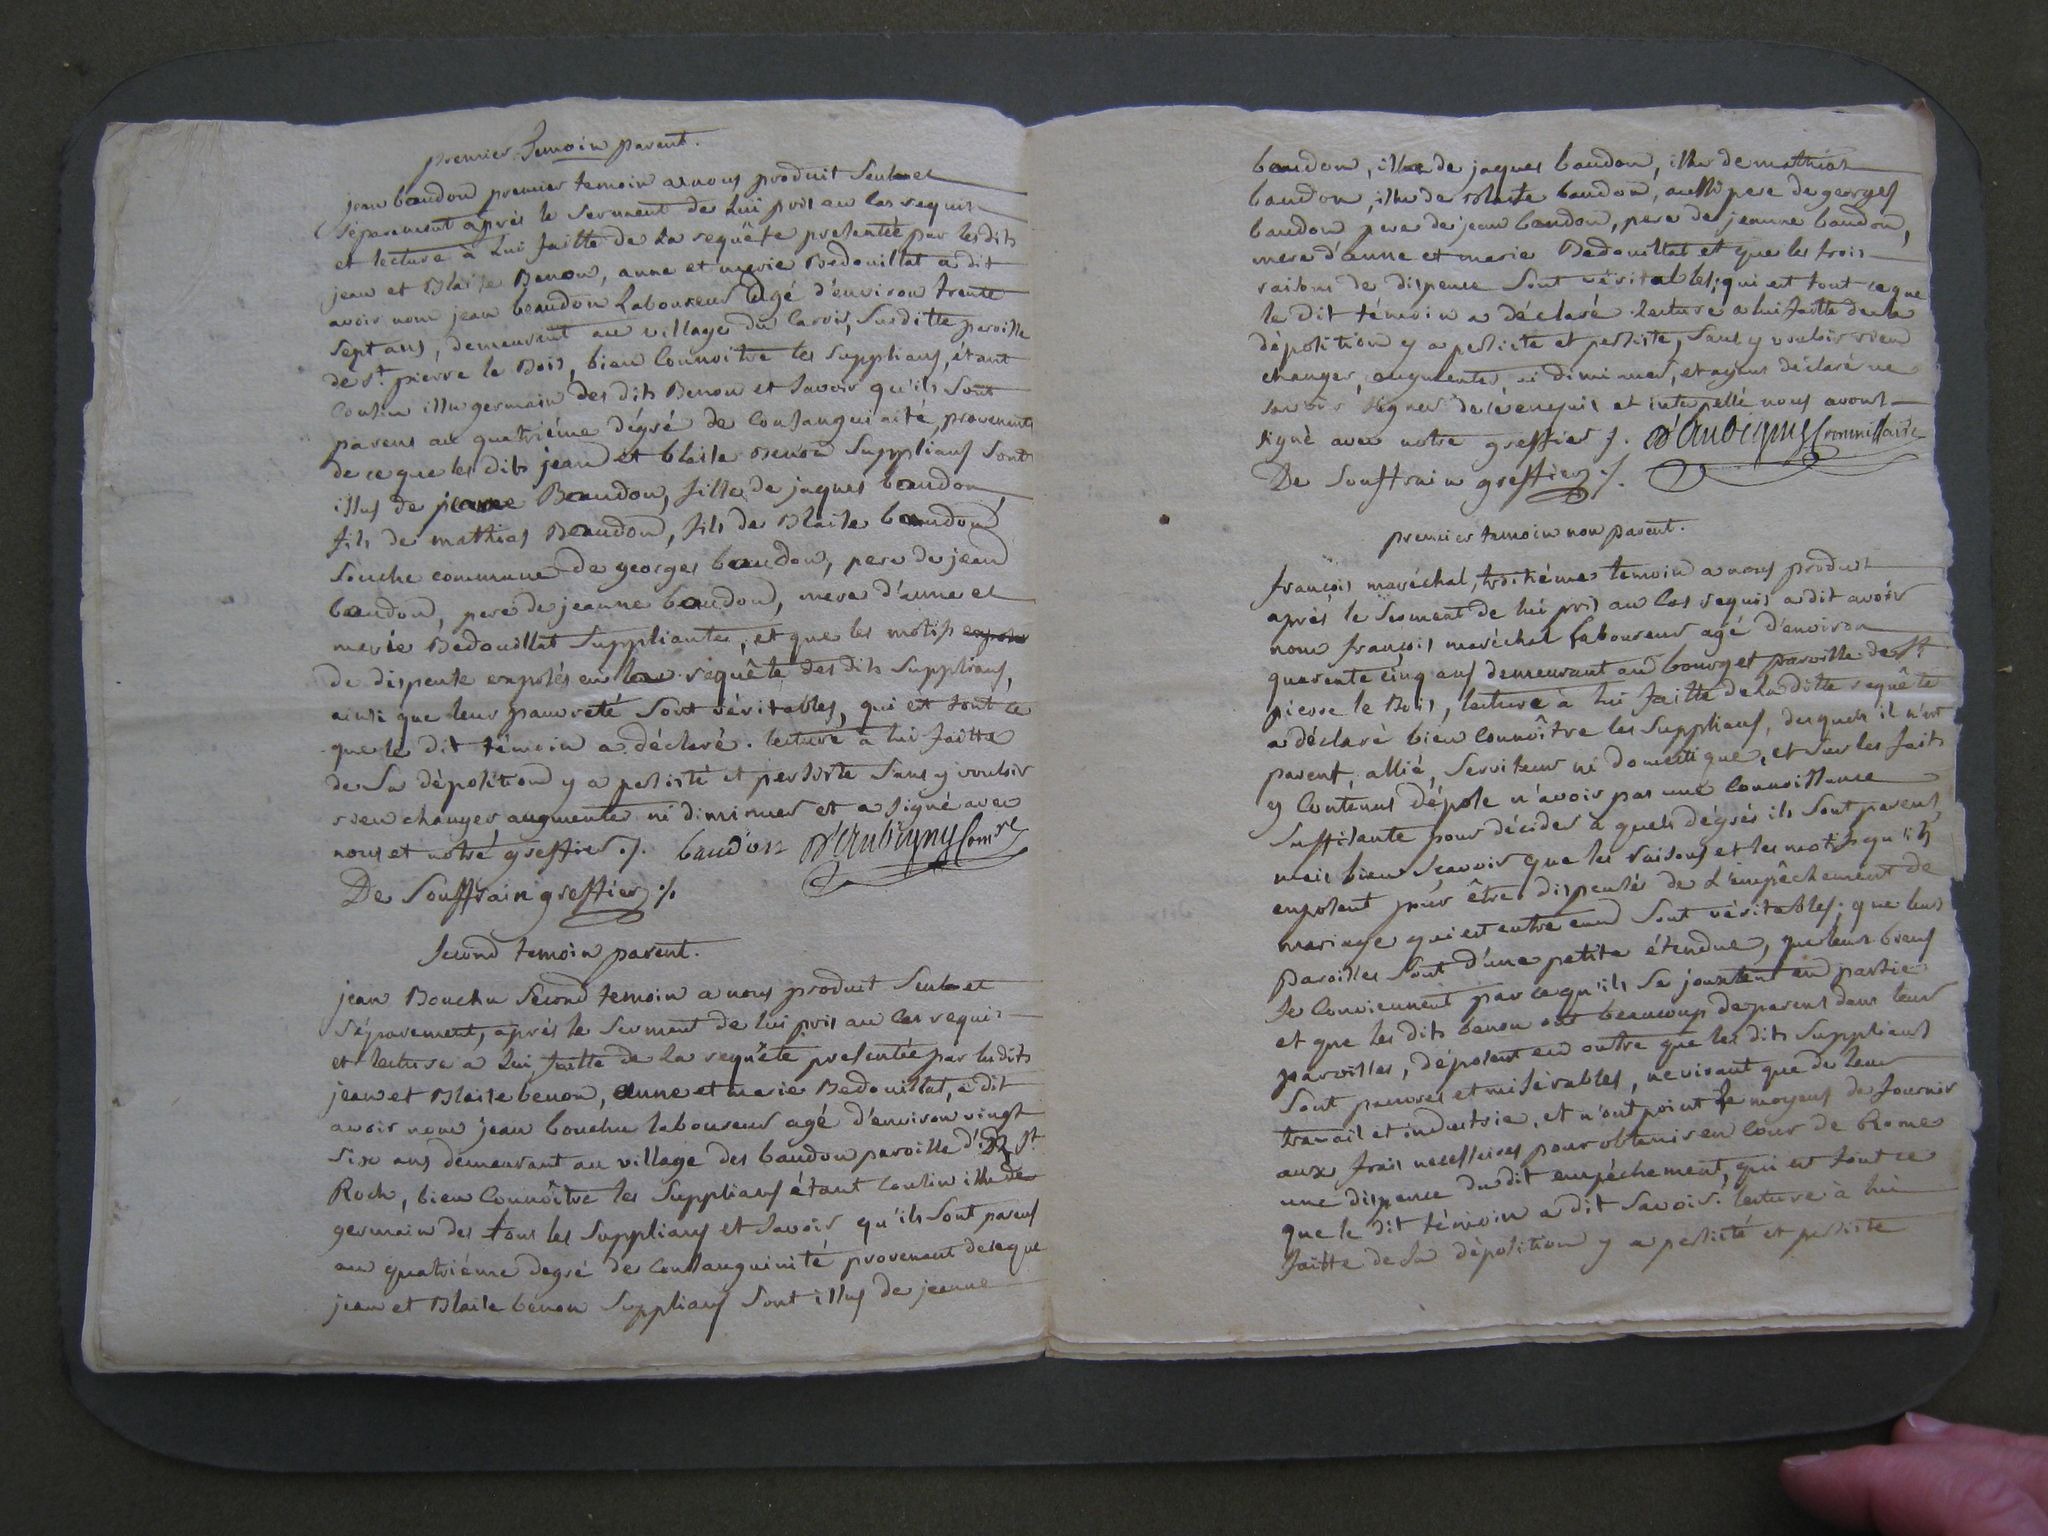 premier temoin parent.
jean baudon premier temoin a nous produit seul et
séparement après le serment de lui pris au cas requis
et lecture à lui faitte de la requête presentée par les dits
jean et Blaise Benon, anne et marie Bedouillat a dit
avoir nom jean baudon laboureur agé d'environ trente
sept ans, demeurant au village du carois, susditte paroisse
de st. pierre le Bois, bien connoitre les supplians, étant
cousin issu germain des dits Benon et savoir qu'ils sont
parens au quatriéme dégré de consanguinité, provenant
de ce que les dits jean et blaise benon supplians sont
issus de jeanne Baudon, fille de jaques baudon,
fils de mathias Baudon, fils de Blaise baudon
souche commune de georges baudon, pere de jean
baudon, pere de jeanne baudon, mere d'anne et
marie Bedouillat suppliantes, et que les motifs
de dispense exposés en la requête des dits supplians,
ainsi que leur pauvreté sont véritables, qui est tout ce
que le dit témoin a déclaré. lecture à lui faitte
de sa déposition y a persisté et persiste sans y vouloir
rien changer augmenter ni diminuer et a signé avec
nous et notre greffier ./. baudon D'Aubigny Comre
De Souffrain greffier ./.
second temoin parent.
jean Bouchu second temoin a nous produit seul et
séparement, après le serment de lui pris au cas requis
et lecture a lui faitte de la requête presentée par les dits
jean et Blaise benon, anne et marie Bedouillat, a dit
avoir nom jean bouchu laboureur agé d'environ vingt
six ans demeurant au village des baudon paroisse d' st.
Roch, bien connoître les supplians étant cousin issu de
germain des tous les supplians et savoir qu'ils sont parens
au quatriéme degré de consanguinité provenant de ce que
jean et Blaise benon supplians sont issus de jeanne
baudon, issue de jaques baudon, issu de mathias
baudon, issu de blaise baudon, aussi pere de georges
baudon pere de jean baudon, pere de jeanne baudon,
mere d'anne et marie Bedouillat et que les trois
raisons de dispense sont véritables; qui est tout ce que
le dit témoin a déclaré. lecture a lui faitte de sa
déposition y a persisté et persiste, sans y vouloir rien
changer, augmenter, ni diminuer, et ayant déclaré ne
savoir signer de ce enquis et interpellé nous avons
signé avec notre greffier ./. D'Aubigny Commissaire
De Souffrain greffier ./.
premier temoin non parent.
françois maréchal, troisiéme temoin a nous produit
après le serment de lui pris au cas requis a dit avoir
nom françois maréchal laboureur agé d'environ
quarente cinq ans demeurant au bourg et paroisse de st.
pierre le Bois, lecture à lui faitte de la ditte requête
a déclaré bien connoître les supplians, desquels il n'est
parent, allié, serviteur ni domestique, et sur les faits
y contenus dépose n'avoir pas une connoissance
suffisante pour décider à quels dégrés ils sont parens,
mais bien scavoir que les raisons et les motifs qu'ils
exposent pour être dispensés de l'empêchement de
mariage qui est entre eux sont véritables; que leurs
paroisses sont d'une petite étendue, que leurs biens
se conviennent par ce qu'ils se jouxtent en partie
et que les dits benon ont beaucoup de parens dans leur
paroisses, dépose en outre que les dits supplians
sont pauvres et misérables, ne vivant que de leur
travail et industrie, et n'ont point le moyens de fournir
aux frais necessaires pour obtenir en cour de Rome
une dispense du dit empêchement, qui est tout ce
que le dit témoin a dit savoir. lecture à lui
faitte de sa déposition y a persisté et persiste